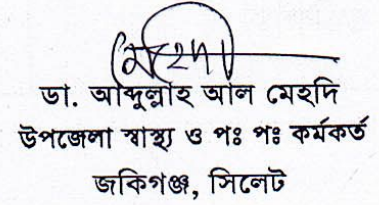 মেহদি
ডা. আব্দুল্লাহ আল মেহদি
উপজেলা স্বাস্থ্য ও পঃ পঃ কর্মকর্ত
জকিগঞ্জ, সিলেট